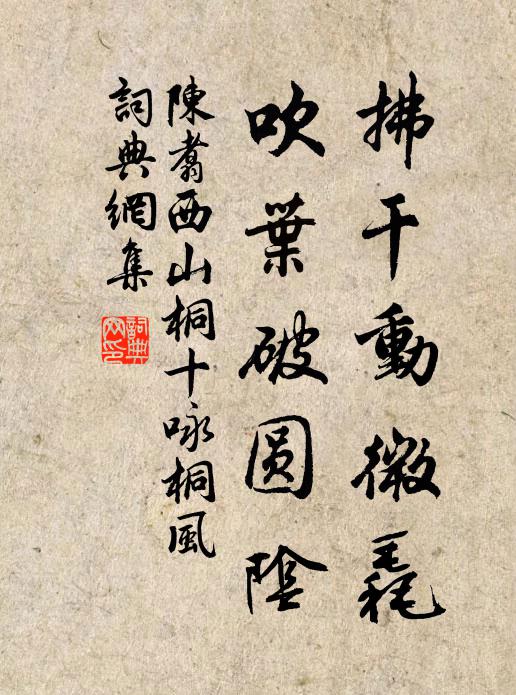 拂干動微毳
吹葉破圓陰
陳翥西山桐十咏桐風
詞典網集
詞典
网印